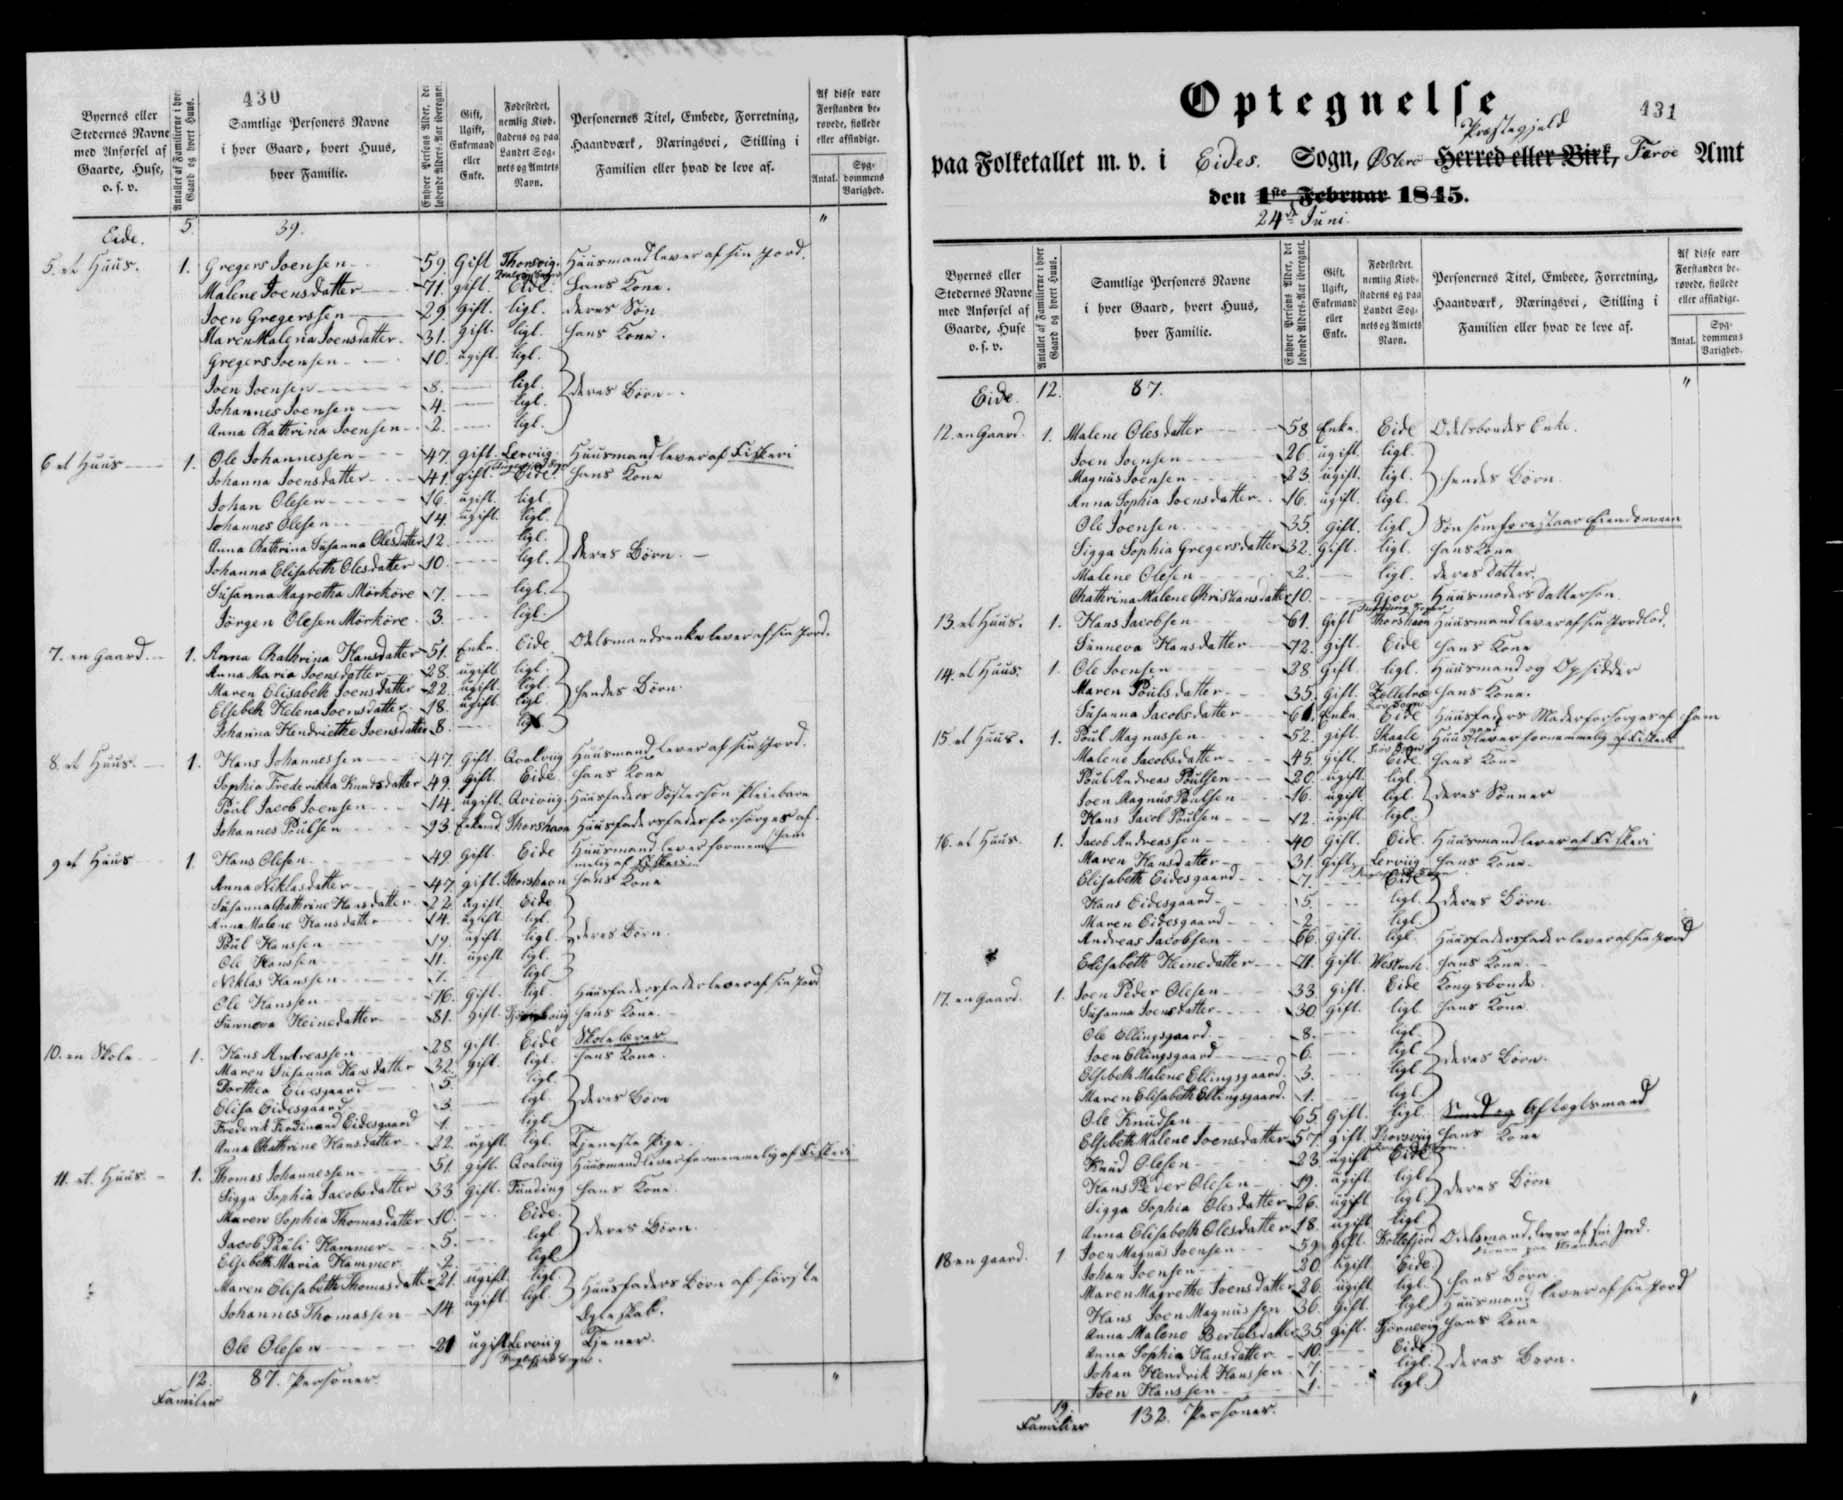 430
Byernes eller Stedernes Navne med Anførsel af Gaarde, Huse, o. s. v.
Antallet af Familierne i hver Gaard og hvert Huus.
Samtlige Personers Navne i hver Gaard, hvert Huus, hver Familie.
Enhver Persons Alder, det løbende Alders-Aar iberegnet.
Gift, Ugift, Enkemand eller Enke.
Fødestedet, nemlig Kiøbstadens og paa Landet Sognets og Amtets Navn.
Personernes Titel, Embede, Forretning, Haandværk, Næringsvei, Stilling i Familien eller hvad de leve af.
Af disse vare Forstanden berøvede, fiollede eller afsindige.
Antal. Sygdommens Varighed.
Eide. 5. 39. "
5. et Huus. 1. Gregers Joensen 59 Gift Thorsvig. Huusmand lever af sin Jord.
Malene Joensdatter 71. gift. Eide. Hans Kone.
Joen Gregerssen 29. gift. ligl. deres Søn
Maren Malena Joensdatter. 31. gift. ligl. hans Kone.
Gregers Joensen 10. ugift. ligl.
Joen Joensen 8. ligl. deres Børn.
Johannes Joensen 4. ligl.
Anna Chathrina Joensen 2. ligl.
6 et Huus 1. Ole Johannessen 47. gift. Lervüg Huusmand lever af Fiskeri
Johanna Joensdatter 41. gift. Eide. hans Kone
Johan Olesen 16. ugift. ligl.
Johannes Olesen 14. ugift. ligl.
Anna Chathrina Susanna Olesdatter 12. ligl.
Johanna Elisabeth Olesdatter 10. ligl. deres Børn.
Susanna Magretha Mörköre 7. ligl.
Jörgen Olesen Mörköre 3. ligl.
7. en Gaard. 1. Anna Chathrina Hansdatter 51. Enke. Eide. Odelsmandsenke lever af sin Jord.
Anna Maria Joensdatter 28. ugift. ligl.
Maren Elisabeth Joensdatter 22. ugift. ligl. hendes Børn.
Elsebeth Helena Joensdatter 18. ugift. ligl
Johanna Hendriethe Joensdatter 8. ligl
8. et Huus. 1. Hans Johannessen 47. gift. Qvalvüg Huusmand lever af sin Jord.
Sophia Frederikka Knudsdatter 49. gift. Eide hans Kone
Poul Jacob Joensen 14. ugift. Qvivüg Huusfaders Søstersøn Pleiebarn
Johannes Poulsen 93. Enkemd. Thorshavn Huusfaders fader forsørges af ham
9 et Huus 1. Hans Olesen 49. gift. Eide Huusmand lever fornemmelig af Fiskeri
Anna Niklasdatter 47. gift. Thorshavn hans Kone
Susanna Chathrine Hansdatter 22. ugift. Eide
Anna Malene Hansdatter 14. ugift. ligl.
Poul Hanssen 19. ugift. ligl. deres Børn.
Ole Hanssen 11. ugift. ligl.
Niklas Hanssen 7. ligl
Ole Hanssen 76. gift. ligl Huusfaders fader lever af sin Jord
Sunneva Heinedatter 81. gift. hans Kone.
10. en Skole 1. Hans Andreassen 28 gift. Eide Skolelærer
Maren Susanna Hansdatter 32. gift. ligl. hans Kone.
Dorthea Eidesgaard 5. ligl.
Elisa Eidesgaard 3. ligl. deres Børn
Frederik Ferdinand Eidesgaard 1. ligl
Anna Chathrine Hansdatter 22. ugift. ligl. Tjeneste Pige.
11. et. Huus. 1. Thomas Johannessen 51. gift. Qvalvüg Huusmand lever fornemmelig af Fiskeri
Sigga Sophia Jacobsdatter 33 gift. Funding hans Kone.
Maren Sophia Thomasdatter 10. Eide.
Jacob Pauli Hammer 5. ligl deres Børn.
Elsebeth Maria Hammer 2. ligl
Maren Elisabeth Thomasdatter 21. ugift. ligl. Huusfaders Børn af første Egteskab.
Johannes Thomassen 14 ugift. ligl.
Ole Olesen 21 ugift Lervüg Tjener.
12. Familier 87. Personer. "
431
Optegnelse
paa Folketallet m. v. i Eides. Sogn, Østerø Herred eller Birk, Præstegjeld Færøe Amt
den 1ste Februar 1845.
24d Juni.
Byernes eller Stedernes Navne med Anførsel af Gaarde, Huse o. s. v.
Antallet af Familierne i hver Gaard og hvert Huus.
Samtlige Personers Navne i hver Gaard, hvert Huus, hver Familie.
Enhver Persons Alder, det løbende Alders-Aar iberegnet.
Gift, Ugift, Enkemand eller Enke.
Fødestedet, nemlig Kiøbstadens og paa Landet Sognets og Amtets Navn.
Personernes Titel, Embede, Forretning, Haandværk, Næringsvei, Stilling i Familien eller hvad de leve af.
Af disse vare Forstanden berøvede, fiollede eller afsindige.
Antal. Sygdommens Varighed.
Eide. 12. 87. "
12. en Gaard. 1. Malene Olesdatter 58 Enke. Eide Odelsbondes Enke.
Joen Joensen 26 ugift. ligl.
Magnus Joensen 23. ugift. ligl. hendes Børn.
Anna Sophia Joensdatter 16. ugift. ligl.
Ole Joensen 35. gift. ligl. Søn som forestaar Eiendommen
Sigga Sophia Gregersdatter 32. gift. ligl. hans Kone
Malene Olesen 2. ligl. deres datter.
Chathrina Malene Christiansdatter 10. Gjov Huusmoders Dattersøn.
13. et Huus. 1. Hans Jacobsen 61. Gift Thorshavn Huusmand lever af sin Jordlod.
Sunneva Hansdatter 72. gift. Eide hans Kone
14. et Huus. 1. Ole Joensen 28. gift. ligl. Huusmand og Opsidder
Maren Poulsdatter 35. gift. Zelletræ hans Kone.
Susanna Jacobsdatter 61. Enke Eide Huusfaders Moder forsørges af ham
15. et Huus. 1. Poul Magnussen 52. gift. Skaale Huusmand lever fornemmelig af Fiskeri
Malene Jacobsdatter 45. gift. Eide hans Kone
Poul Andreas Poulsen 20. ugift. ligl.
Joen Magnus Poulsen 16. ugift. ligl. deres Sønner
Hans Jacob Poulsen 12. ugift. ligl.
16. et Huus 1. Jacob Andreassen 40 gift. Eide Huusmand lever af Fiskeri
Maren Hansdatter 31. gift. Lervüg hans Kone.
Elisabeth Eidesgaard 7. Eide
Hans Eidesgaard 5. ligl. deres Børn.
Maren Eidesgaard 2. ligl
Andreas Jacobsen 66. gift. ligl. Huusfaders fader lever af sin Jord
Elisabeth Heinedatter 71. gift. Westmh. hans Kone.
17. en Gaard. 1. Joen Peder Olesen 33 gift. Eide Kongsbonde.
Susanna Joensdatter 30. gift. ligl hans Kone
Ole Ellingsgaard 8. ligl
Joen Ellingsgaard 6. ligl deres Børn.
Elsebeth Malene Ellingsgaard. 3. ligl
Maren Elisabeth Ellingsgaard. 1. ligl
Ole Knudsen 65. gift. ligl. Aftægtsmand
Elsebeth Malene Joensdatter 57. gift. Thorsvüg hans Kone
Knud Olesen 23. ugift. Eide
Hans Peder Olesen 19. ugift. ligl. deres Børn
Sigga Sophia Olesdatter 26. ugift. ligl.
Anna Elisabeth Olesdatter 18. ugift. ligl
18 en gaard. 1 Joen Magnus Joensen 59. gift. Kollefjord Odelsmand, lever af sin Jord.
Johan Joensen 20. ugift. Eide.
Maren Magrethe Joensdatter 26. ugift. ligl. hans Børn.
Hans Joen Magnussen 36. gift. ligl. Huusmand lever af sin Jord
Anna Malene Bertelsdatter 35. gift. Tjørnevig hans Kone
Anna Sophia Hansdatter 10. Eide.
Johan Hendrik Hanssen 7. ligl. deres Børn.
Joen Hanssen 1. ligl.
19. Familier 132. Personer. "